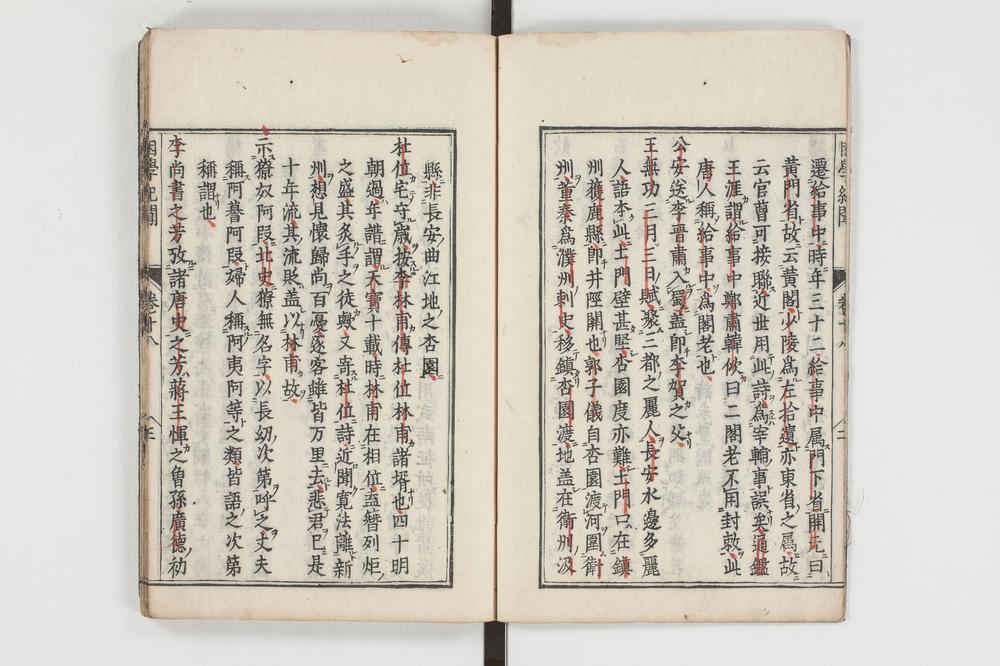 遷給事中時年三十二給事中属門下省開元曰
黄門省故云黄閣少陵為左拾遺亦東省之属故
云官曹可接聯近世用此詩為宰輔事誤矣通鑑
王涯謂給事中鄭肅韓佽曰二閣老不用封敕此
唐人稱給事中為閣老也
公安送李晋肅入蜀蓋即李賀之父
王無功三月三日賦聚三都之麗人長安水邊多麗
人語李此土門壁甚堅杏園度亦難土門口在鎮
州獲鹿縣即井陘關也郭子儀自杏園渡河圍衛
州董秦為濮州刺史移鎮杏園渡地蓋在衛州汲
困學紀聞
卷十八
縣非長安曲江地之杏園
杜位宅守歳按李林甫傳杜位林甫諸壻也四十明
朝過年譜謂天寳十載時林甫在相位盍簪列炬
之盛其炙手之徒歟又寄杜位詩近聞寛法離新
州想見懷歸尚百憂逐客雖皆万里去悲君已是
十年流其流貶蓋以林甫故
示獠奴阿段北史獠無名字以長幼次第呼之丈夫
稱阿謩阿段婦人稱阿夷阿等之類皆語之次第
稱謂也
李尚書之芳攷諸唐史之芳蔣王惲之曽孫廣德初
困學紀聞
卷十八